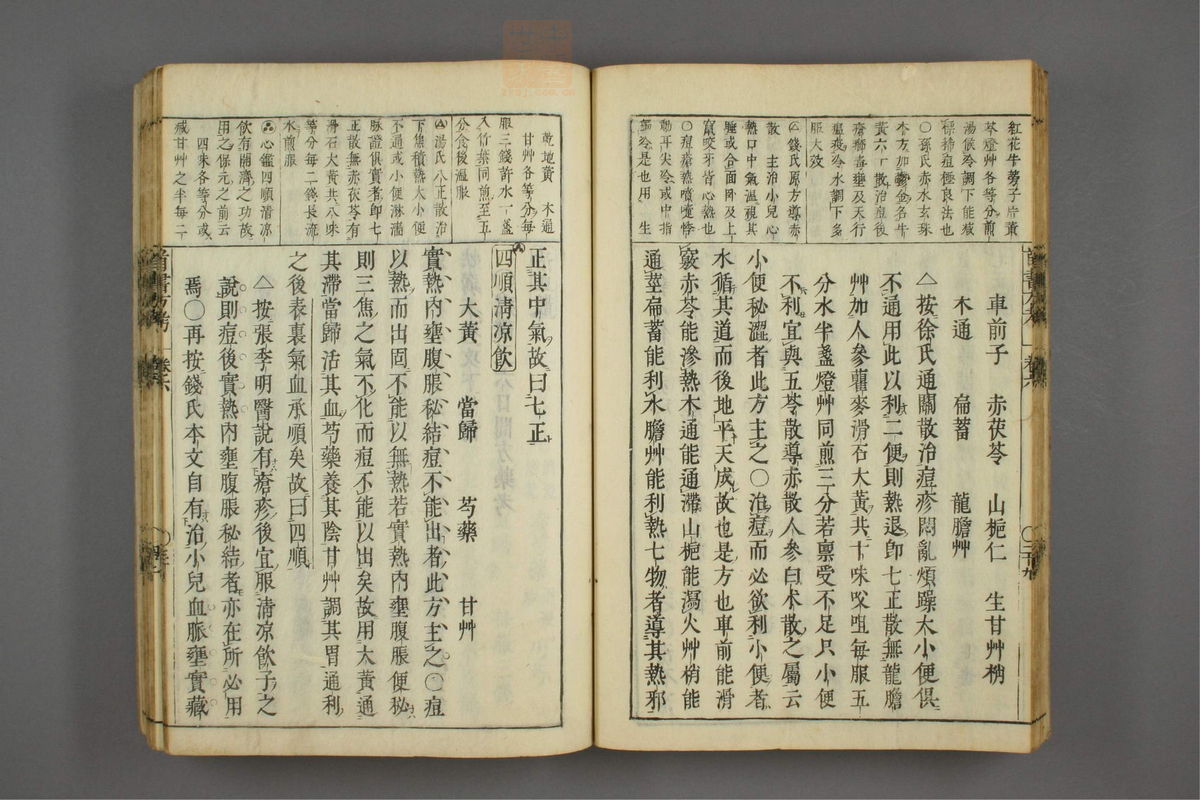 紅花牛蒡子片黃
芩燈艸各等分煎
湯候冷調下能減
標稀痘極良法也
〇孫氏赤水玄珠
本方加鬱金名牛
黃六一散治痘後
瘡癤毒壅及天行
服大效
〇錢氏原方導赤
散 主治小兒心
熱口中氣溫視其
睡或合面臥及上
竄咬牙皆心熱也
〇痘瘡熱噴嚏悸
動耳尖冷或中指
獨冷是也用 生
車前子 赤茯苓 山梔仁 生甘艸梢
木通 扁蓄 龍膽艸
△按徐氏通關散治痘疹悶亂煩躁大小便俱
不通用此以利二便則熱退卽七正散無龍膽
艸加人參蘿麥滑石大黃共十味㕮咀每服五
分水半盞燈艸同煎三分若稟受不足只小便
不利宜與五苓散導赤散人參白朮散之屬云
小便秘澀者此方主之〇治痘而必欲利小便者
水循其道而後地平天成故也是方也車前能滑
竅赤苓能滲熱木通能通滯山梔能瀉火艸梢能
通莖扁蓄能利水膽艸能利熱七物者導其熱邪
乾地黃 木通
甘艸各等分每
服三錢許水一盞
入竹葉同煎至五
分食後溫服
湯氏八正散治
下焦積熱大小便
不通或小便淋滿
脉證俱實者卽七
正散無赤茯苓有
滑石大黃共八味
等分每二錢長流
水煎服
心鑑四順清凉
飲有開濟之功故
用之保元之前云
四味各等分或
減甘艸之半每二
正其中氣故曰七正
四順淸凉飮
大黃 當歸 芍藥 甘艸
實熱內壅腹脹秘結痘不能出者此方主之〇痘
以熱而出固不能以無熱若實熱內壅腹脹便秘
則三焦之氣不化而痘不能以出矣故用大黃通
其滯當歸活其血芍藥養其陰甘艸調其胃通利
之後表裏氣血承順矣故曰四順
△按張季明醫說有瘡疹後宜服清凉飮子之
說則痘後實熱內壅腹脹秘結者亦在所必用
焉〇再按錢氏本文自有治小兒血脈壅實藏